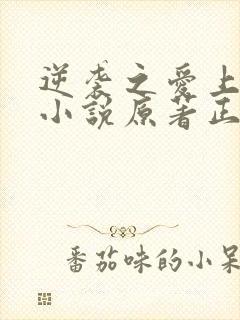 逆袭之愛上
小說原著正
番茄味的小呆